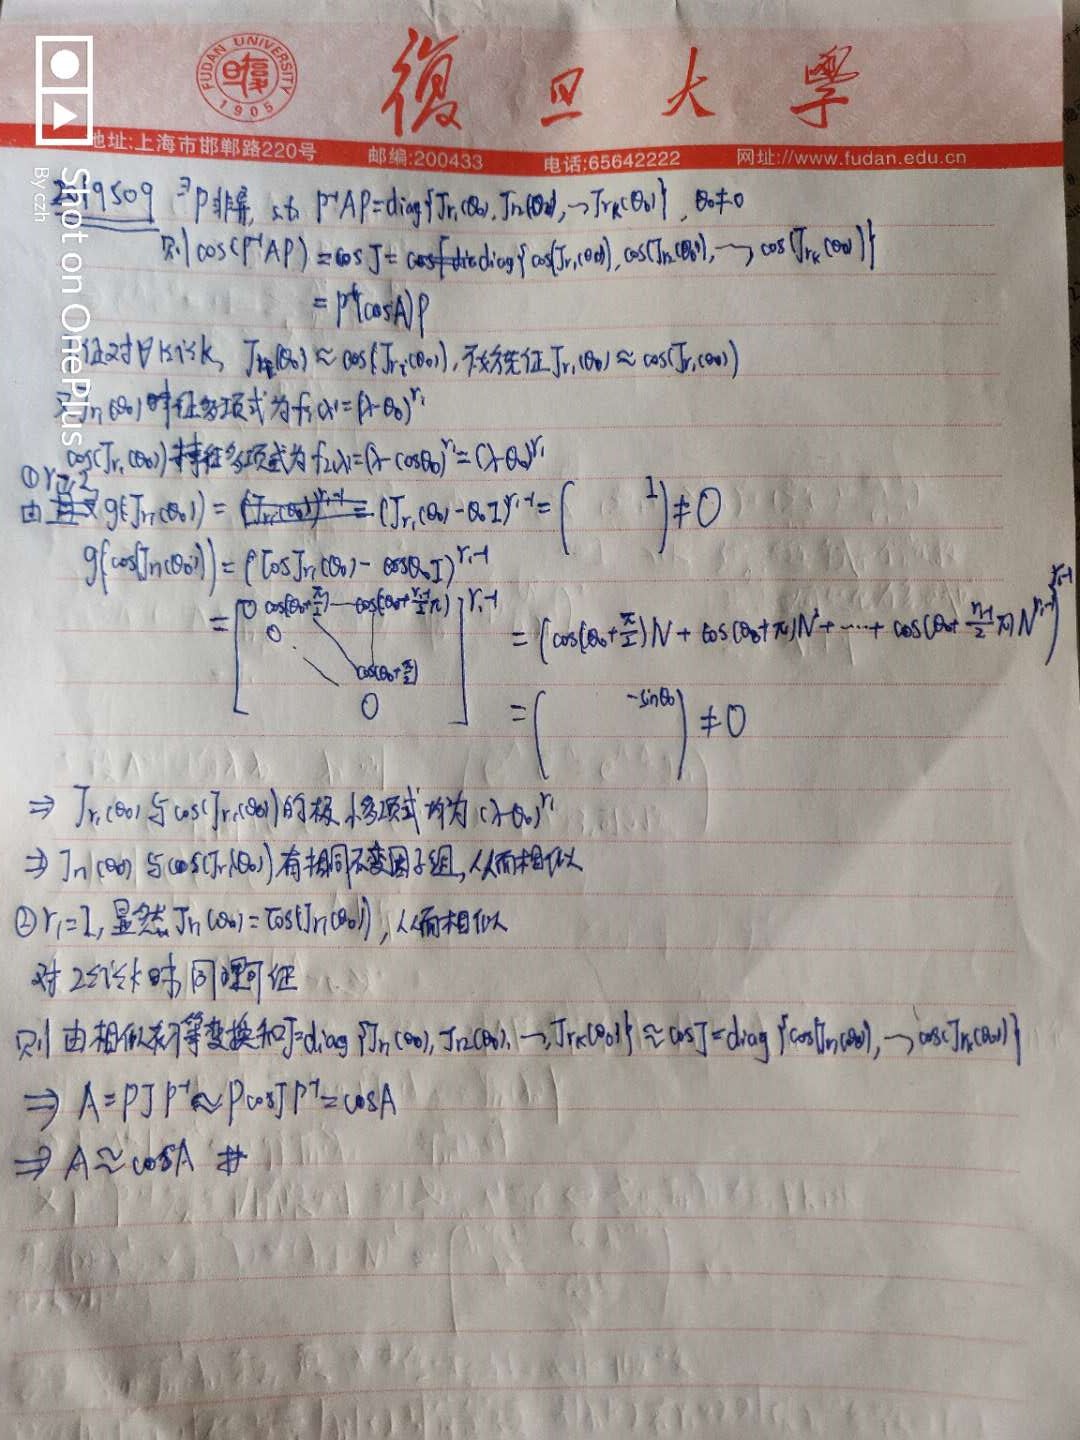 FUDAN UNIVERSITY
1905
復旦大學
地址:上海市邯郸路220号 邮编:200433 电话:65642222 网址://www.fudan.edu.cn
Shot on OnePlus
By czh
S09 ∃P非异, s.t. P⁻¹AP=diag{Jr₁(θ₀), Jr₂(θ₀), …, Jrₖ(θ₀)}, θ₀≠0
则 cos(P⁻¹AP) = cosJ = diag{cos(Jr₁(θ₀)), cos(Jr₂(θ₀)), …, cos(Jrₖ(θ₀))}
= P⁻¹(cosA)P
证对∀1≤i≤k, Jrᵢ(θ₀)≈cos(Jrᵢ(θ₀)), 不妨先证Jr₁(θ₀)≈cos(Jr₁(θ₀))
Jr₁(θ₀)特征多项式为f₁(λ)=(λ-θ₀)^r₁
cos(Jr₁(θ₀))特征多项式为f₂(λ)=(λ-cosθ₀)^r₁=(λ-θ₀)^r₁
① r₁≥2
由 g(Jr₁(θ₀)) = (Jr₁(θ₀)-θ₀I)^(r₁-1) = ( 1 ) ≠ 0
g(cos(Jr₁(θ₀))) = (cosJr₁(θ₀) - cosθ₀I)^(r₁-1)
= [0 cos(θ₀+π/2) … cos(θ₀+(r₁-1)/2 π) 0 cos(θ₀+π/2) 0]^(r₁-1) = (cos(θ₀+π/2)N + cos(θ₀+π)N² + … + cos(θ₀+(r₁-1)/2 π)N^(r₁-1))^(r₁-1)
= ( -sinθ₀ ) ≠ 0
⇒ Jr₁(θ₀)与cos(Jr₁(θ₀))的极小多项式均为(λ-θ₀)^r₁
⇒ Jr₁(θ₀)与cos(Jr₁(θ₀))有相同不变因子组, 从而相似
② r₁=1, 显然Jr₁(θ₀)=cos(Jr₁(θ₀)), 从而相似
对2≤i≤k时同理可证
则由相似初等变换知J=diag{Jr₁(θ₀), Jr₂(θ₀), …, Jrₖ(θ₀)}≈cosJ=diag{cos(Jr₁(θ₀)), …, cos(Jrₖ(θ₀))}
⇒ A=PJP⁻¹≈PcosJP⁻¹=cosA
⇒ A≈cosA #